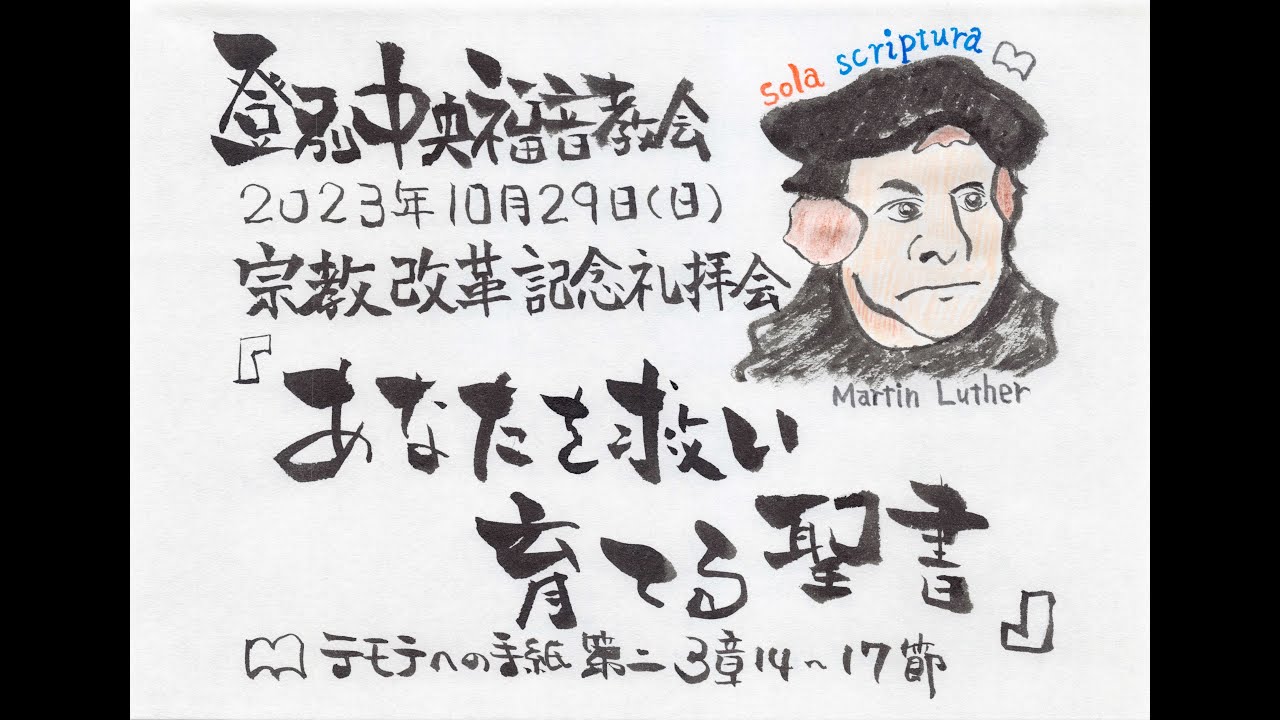 sola scriptura
登別中央福音教会
2023年10月29日(日)
宗教改革記念礼拝会
Martin Luther
『あなたを救い
育てる聖書』
テモテへの手紙 第二 3章14~17節